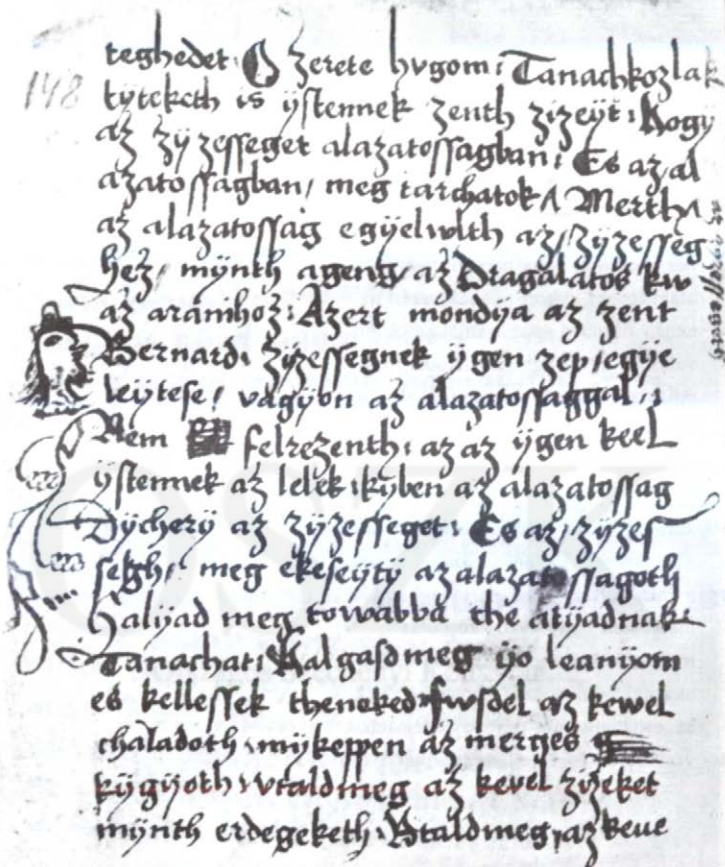 148
teghedet· O zerete hvgom: Tanachkozlak
tytekcth is ÿstennek zenth zizeÿt: Hogÿ
az zÿzesseget alazatossagban: Es az al
azatossagban/ meg tarchatok/ Merth
az alazatossag egÿelwlth az/zÿzesseg
hez/ mÿnth ageng/ az Dragalatos kw
az aramhoz: Azert mondÿa az zent
Bernard: zÿzessegnek ÿgen zep/egÿe
leÿtese/ vagÿon az alazatossaggal:
Nem felrezenth: az az ÿgen keel
ÿstennek az lelek: kÿben az alazatossag
Dÿcherÿ az zÿzesseget: Es az/zÿzes
segh/ meg ekeseÿtÿ az alazatossagoth
halÿad meg towabba the atÿadnak
Tanachat: Halgasd meg ÿo leanÿom
es kellessek theneked: fwsdel az kewel
chaladoth: mÿkeppen az merges
kÿgÿoth: vtald meg az kevel zizeket
mÿnth erdegeketh: Vtald meg/ az keue